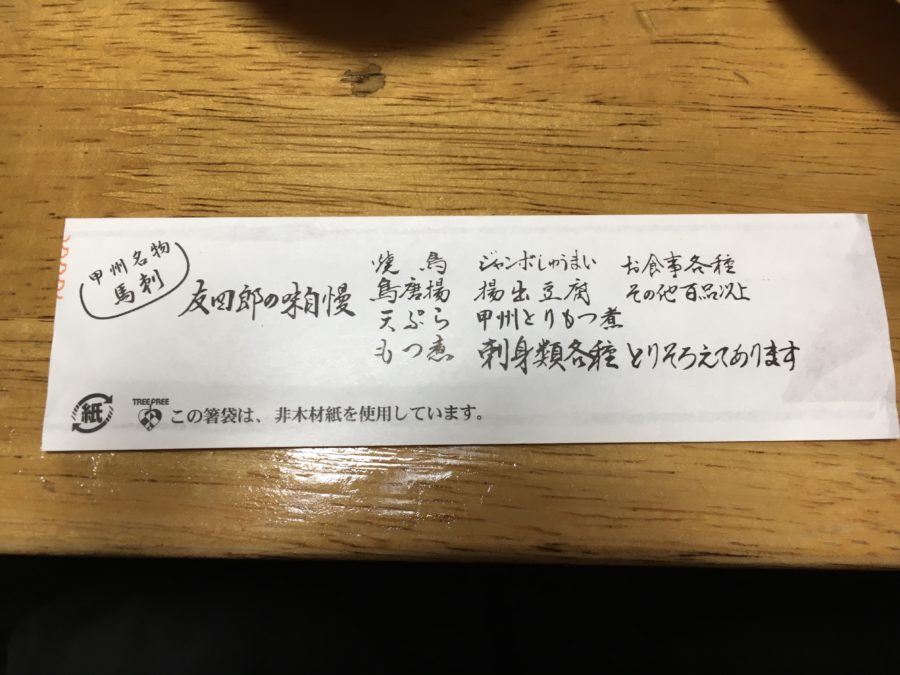 甲州名物
馬刺
友四郎の味自慢
焼鳥 ジャンボしゅうまい お食事各種
鳥唐揚 揚出豆腐 その他百品以上
天ぷら 甲州とりもつ煮
もつ煮 刺身類各種とりそろえてあります
紙
TREE FREE
この箸袋は、非木材紙を使用しています。